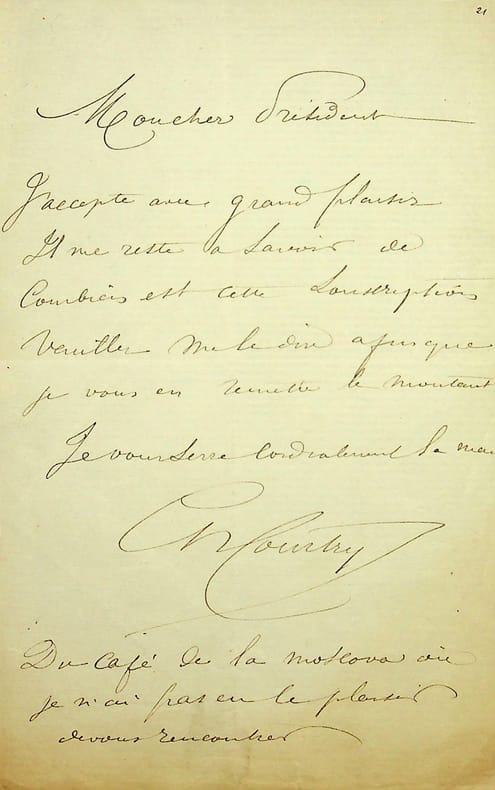 21
Mon cher Président
J'accepte avec grand plaisir
Il me reste a savoir de
Combien est cette Souscription
Veuillez me le dire afin que
je vous en remette le montant
Je vous serre cordialement la main
Ch Courtry
Du Café de la moskova où
je n'ai pas eu le plaisir
de vous rencontrer